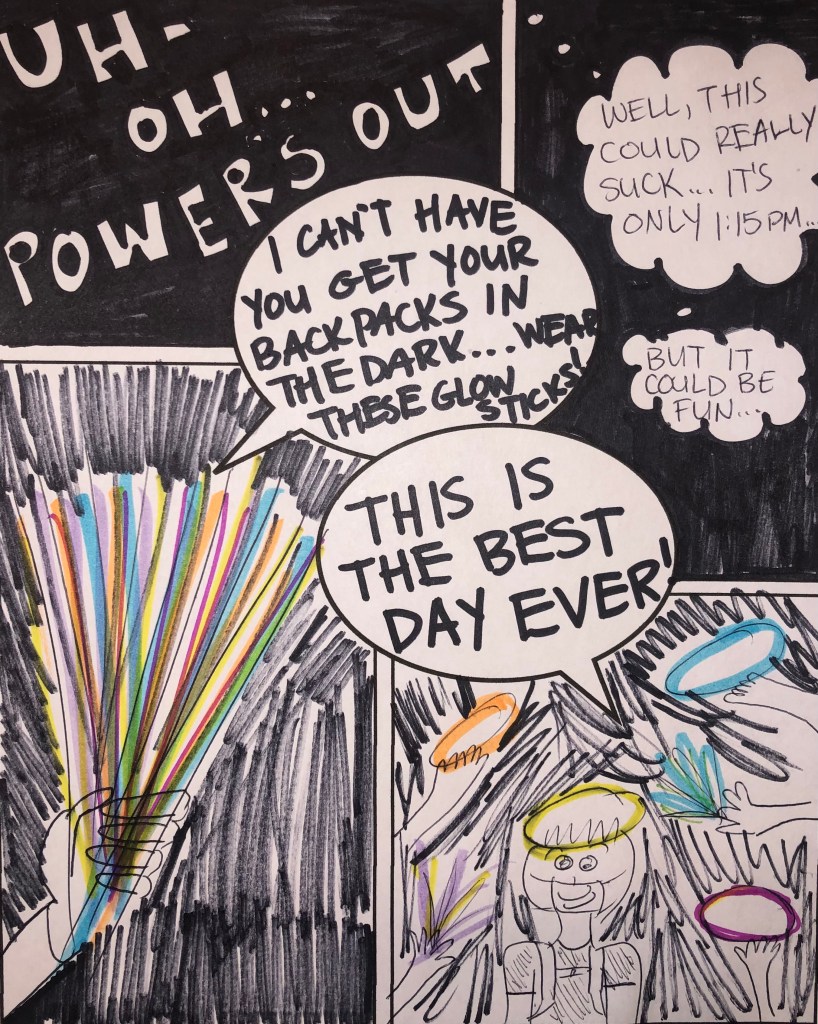 UH-
OH...
POWER'S OUT
WELL, THIS
COULD REALLY
SUCK... IT'S
ONLY 1:15PM...
BUT IT
COULD BE
FUN...
I CAN'T HAVE
YOU GET YOUR
BACKPACKS IN
THE DARK... WEAR
THESE GLOW
STICKS!
THIS IS
THE BEST
DAY EVER!